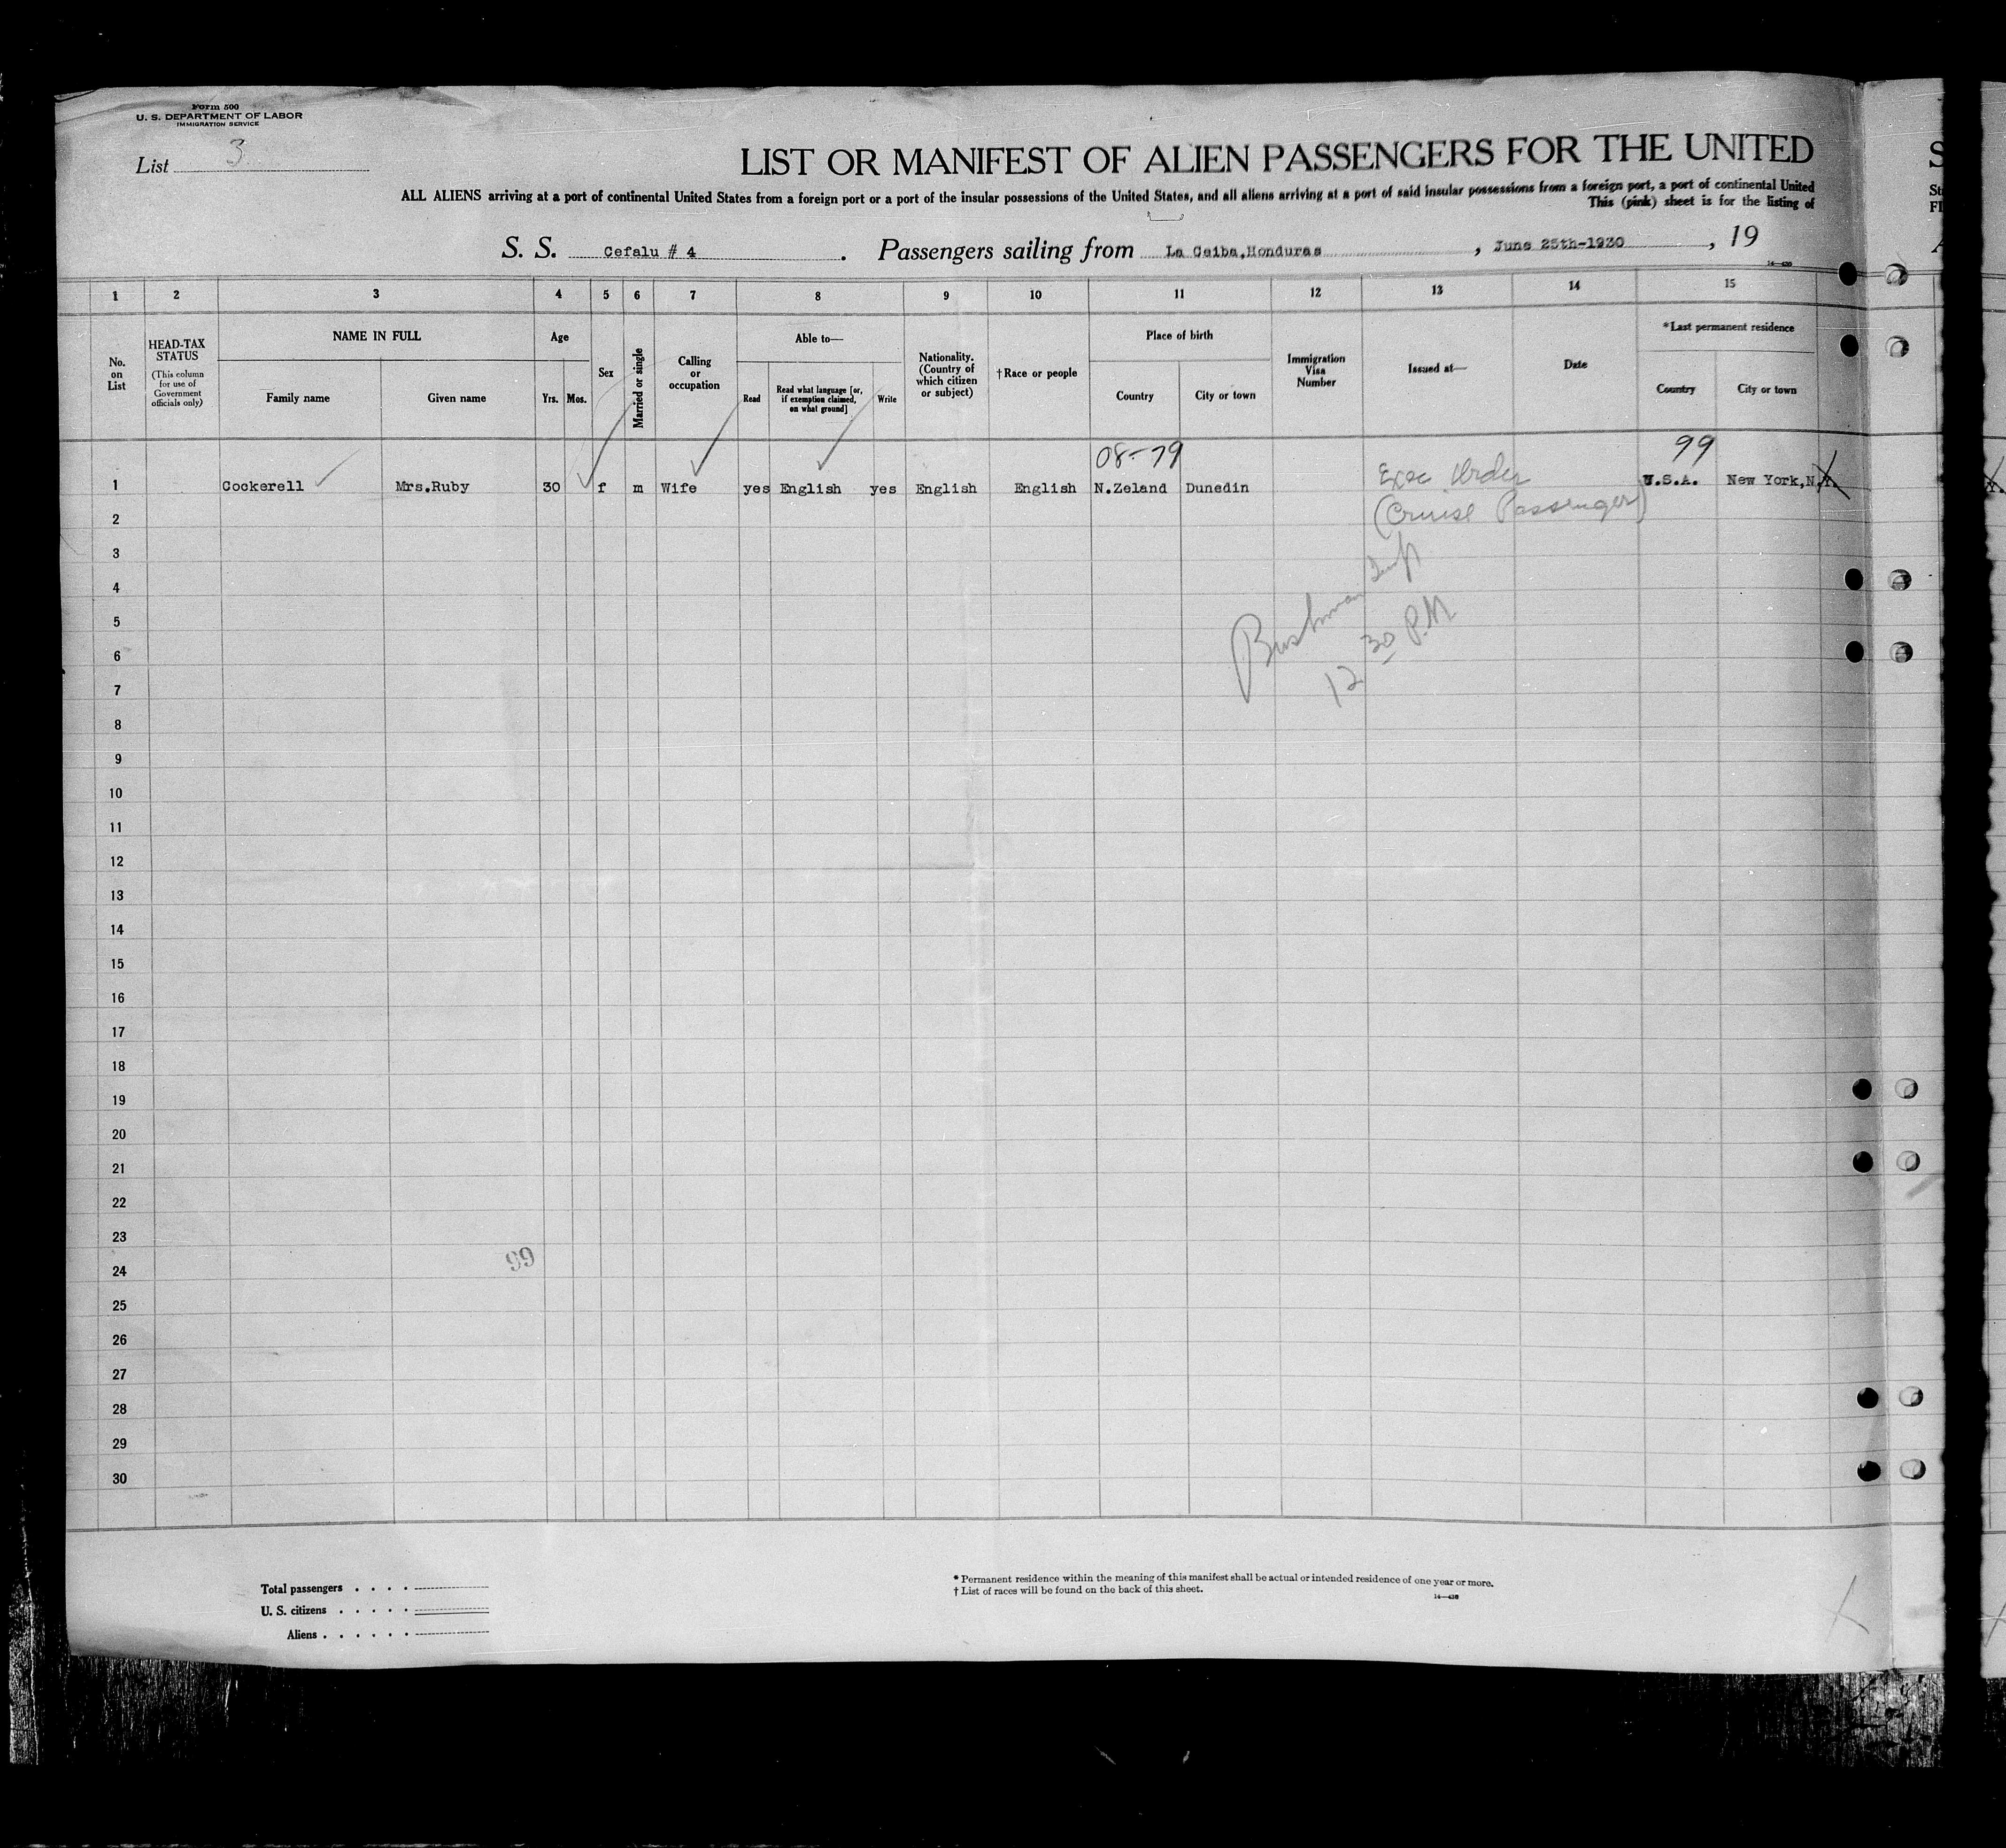 Form 500
U. S. DEPARTMENT OF LABOR
IMMIGRATION SERVICE
List 3
LIST OR MANIFEST OF ALIEN PASSENGERS FOR THE UNITED
ALL ALIENS arriving at a port of continental United States from a foreign port or a port of the insular possessions of the United States, and all aliens arriving at a port of said insular possessions from a foreign port, a port of continental United
This (pink) sheet is for the listing of
S. S. Cefalu # 4 . Passengers sailing from La Ceiba,Honduras , June 25th-1930 , 19
14—430
1 2 3 4 5 6 7 8 9 10 11 12 13 14 15
No. on List
HEAD-TAX STATUS
(This column for use of Government officials only)
NAME IN FULL
Family name
Given name
Age
Yrs.
Mos.
Sex
Married or single
Calling or occupation
Able to—
Read
Read what language [or, if exemption claimed, on what ground]
Write
Nationality. (Country of which citizen or subject)
†Race or people
Place of birth
Country
City or town
Immigration Visa Number
Issued at—
Date
*Last permanent residence
Country
City or town
08-79
99
1 Cockerell Mrs.Ruby 30 f m Wife yes English yes English English N.Zeland Dunedin Exec Order U.S.A. New York,N.Y.
(Cruise Passenger)
2
3
4
5
6
Bushman Insp
12 30 P.M
7
8
9
10
11
12
13
14
15
16
17
18
19
20
21
22
23
99
24
25
26
27
28
29
30
Total passengers . . . .
U. S. citizens . . . . .
Aliens . . . . . .
* Permanent residence within the meaning of this manifest shall be actual or intended residence of one year or more.
† List of races will be found on the back of this sheet.
14—430